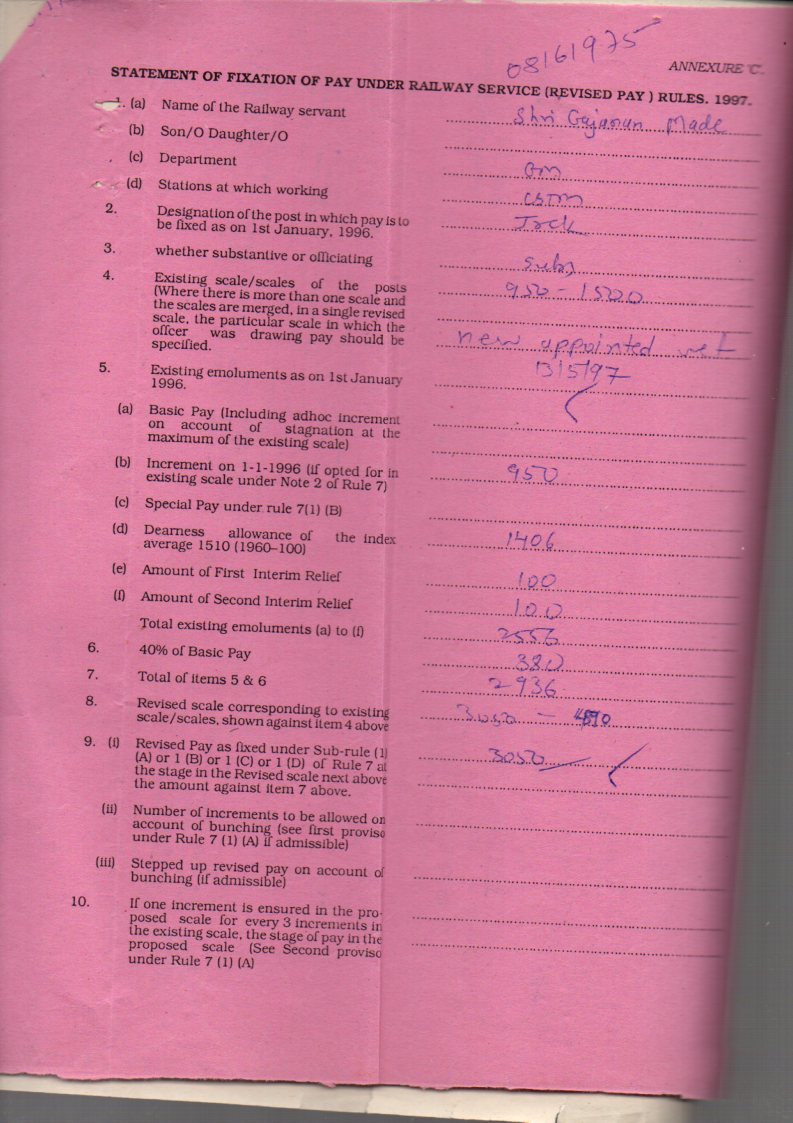 08161975
ANNEXURE 'C'.
STATEMENT OF FIXATION OF PAY UNDER RAILWAY SERVICE (REVISED PAY ) RULES. 1997.
1. (a) Name of the Railway servant Shri Gajanan Made
(b) Son/O Daughter/O
(c) Department
(d) Stations at which working CSTM
2. Designation of the post in which pay is to
be fixed as on 1st January, 1996.
3. whether substantive or officiating Subs
4. Existing scale/scales of the posts 950 - 1500
(Where there is more than one scale and
the scales are merged, in a single revised
scale, the particular scale in which the
offcer was drawing pay should be new appointed wef
specified.
5. Existing emoluments as on 1st January 13/5/97
1996.
(a) Basic Pay (Including adhoc increment
on account of stagnation at the
maximum of the existing scale)
(b) Increment on 1-1-1996 (if opted for in 950
existing scale under Note 2 of Rule 7)
(c) Special Pay under rule 7(1) (B)
(d) Dearness allowance of the index 1406
average 1510 (1960–100)
(e) Amount of First Interim Relief 100
(f) Amount of Second Interim Relief 100
Total existing emoluments (a) to (f) 2556
6. 40% of Basic Pay 380
7. Total of items 5 & 6 2936
8. Revised scale corresponding to existing 3050 - 4590
scale/scales, shown against item 4 above
9. (i) Revised Pay as fixed under Sub-rule (1) 3050
(A) or 1 (B) or 1 (C) or 1 (D) of Rule 7 at
the stage in the Revised scale next above
the amount against item 7 above.
(ii) Number of increments to be allowed on
account of bunching (see first proviso
under Rule 7 (1) (A) if admissible)
(iii) Stepped up revised pay on account of
bunching (if admissible)
10. If one increment is ensured in the pro-
posed scale for every 3 increments in
the existing scale, the stage of pay in the
proposed scale (See Second proviso
under Rule 7 (1) (A)